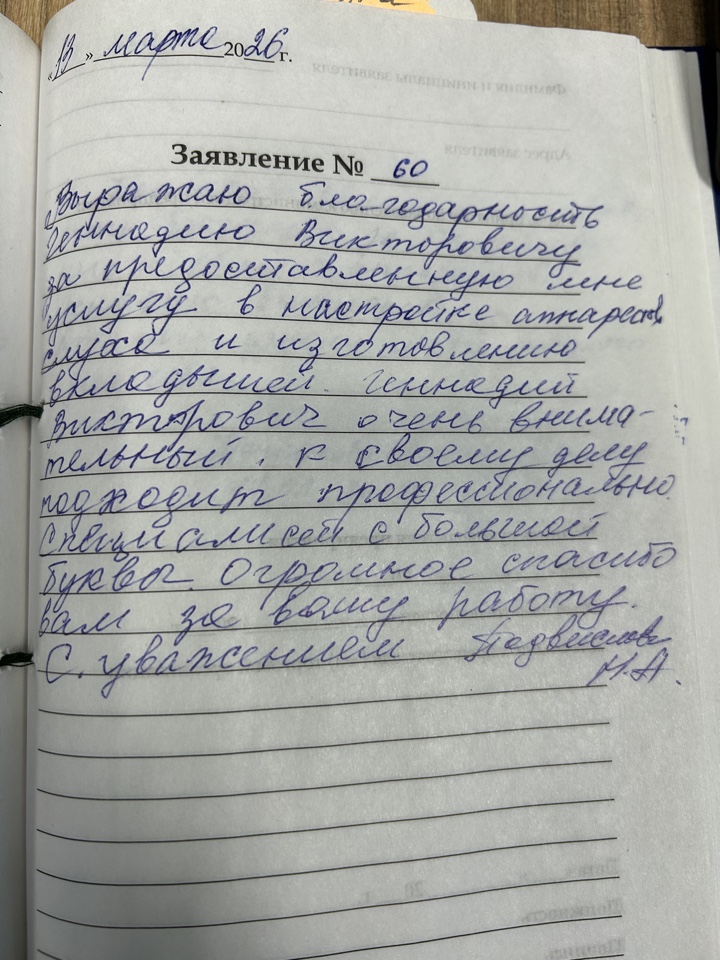 «13» марта 2026 г.
Заявление № 60
Выражаю благодарность
Геннадию Викторовичу
за предоставленную мне
услугу в настройке аппаратов
слуха и изготовлению
вкладышей. Геннадий
Викторович очень внима-
тельный. к своему делу
подходит профессионально.
Специалист с большой
буквы. Огромное спасибо
вам за вашу работу.
С. уважением
Н.А.